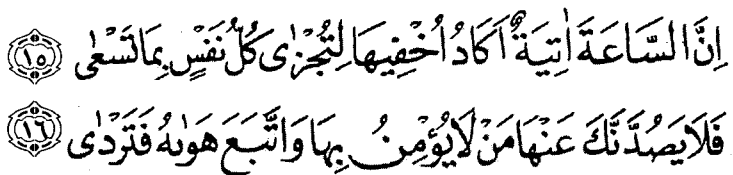 اِنَّ السَّاعَةَ اٰتِيَةٌ اَكَادُ اُخْفِيهَا لِتُجْزٰى كُلُّ نَفْسٍ بِمَا تَسْعٰى ﴿١٥﴾
فَلَا يَصُدَّنَّكَ عَنْهَا مَنْ لَا يُؤْمِنُ بِهَا وَاتَّبَعَ هَوٰيهُ فَتَرْدٰى ﴿١٦﴾